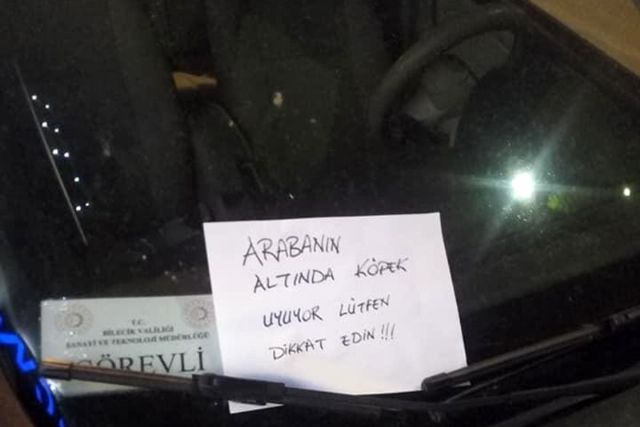 ARABANIN
ALTINDA KÖPEK
UYUYOR LÜTFEN
DİKKAT EDİN !!!
T.C.
BİLECİK VALİLİĞİ
SANAYİ VE TEKNOLOJİ MÜDÜRLÜĞÜ
GÖREVLİ